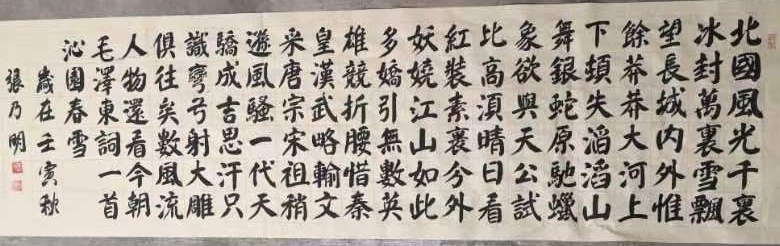 北國風光千裏
冰封萬裏雪飄
望長城內外惟
餘莽莽大河上
下頓失滔滔山
舞銀蛇原馳蠟
象欲與天公試
比高須晴日看
紅裝素裹分外
妖嬈江山如此
多嬌引無數英
雄競折腰惜秦
皇漢武略輸文
采唐宗宋祖稍
遜風騷一代天
驕成吉思汗只
識彎弓射大雕
俱往矣數風流
人物還看今朝
毛澤東詞一首
沁園春雪
歲在壬寅秋
張乃明